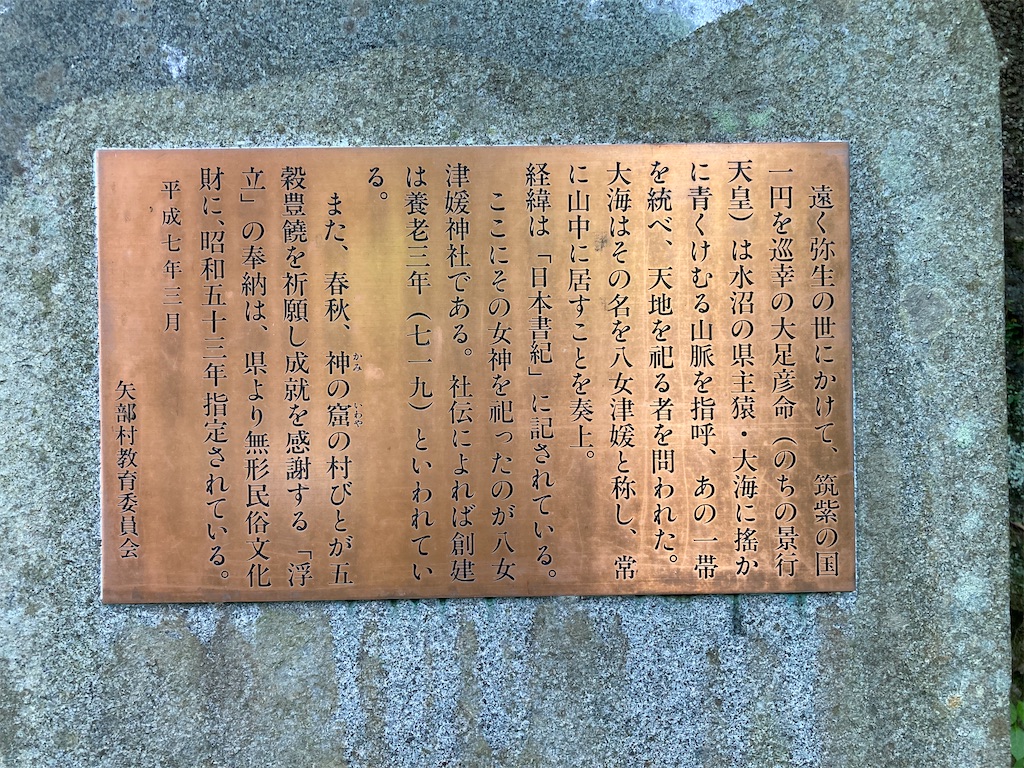 遠く弥生の世にかけて、筑紫の国
一円を巡幸の大足彦命(のちの景行
天皇)は水沼の県主猿・大海に搖か
に青くけむる山脈を指呼、あの一帯
を統べ、天地を祀る者を問われた。
大海はその名を八女津媛と称し、常
に山中に居すことを奏上。
経緯は「日本書紀」に記されている。
ここにその女神を祀ったのが八女
津媛神社である。社伝によれば創建
は養老三年(七一九)といわれてい
る。
また、春秋、神の窟の村びとが五
かみ いわや
穀豊饒を祈願し成就を感謝する「浮
立」の奉納は、県より無形民俗文化
財に、昭和五十三年指定されている。
平成七年三月
矢部村教育委員会